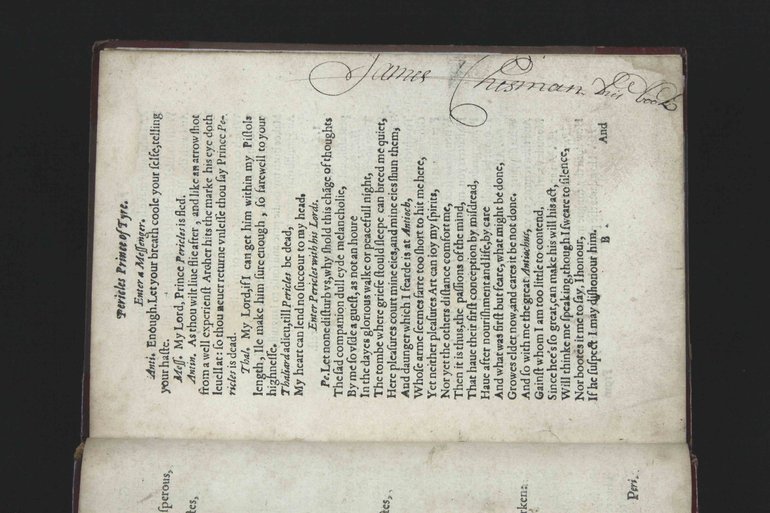 Pericles Prince of Tyre.
Enter a Messenger.
Anti. Enough. Let your breath coole your selfe, telling
your haste.
Mess. My Lord, Prince Pericles is fled.
Antin. As thou wilt liue flie after, and like an arrow shot
from a well experienst Archer hits the marke his eye doth
leuell at: so thou neuer returne vnlesse thou say Prince Pe-
ricles is dead.
Thal. My Lord, if I can get him within my Pistols
length, Ile make him sure enough, so farewell to your
highnesse.
Thaliard adieu, till Pericles be dead,
My heart can lend no succour to my head.
Enter Pericles with his Lords.
Pe. Let none disturb vs, why shold this chāge of thoughts
The sad companion dull eyde melancholie,
By me so vsde a guest, as not an houre
In the dayes glorious walke or peacefull night,
The tombe where griefe should sleepe can breed me quiet,
Here pleasures court mine eies, and mine eies shun them,
And daunger which I fearde is at Antioch,
Whose arme seemes farre too short to hit me here,
Yet neither pleasures Art can ioy my spirits,
Nor yet the others distance comfort me,
Then it is thus, the passions of the mind,
That haue their first conception by misdread,
Haue after nourishment and life, by care
And what was first but feare, what might be done,
Growes elder now, and cares it be not done.
And so with me the great Antiochus,
Gainst whom I am too little to contend,
Since hee's so great, can make his will his act,
Will thinke me speaking, though I sweare to silence,
Nor bootes it me to say, I honour,
If he suspect I may dishonour him.
B.
And
James Chisman his book
sperous,
tes,
rken:
Peri.